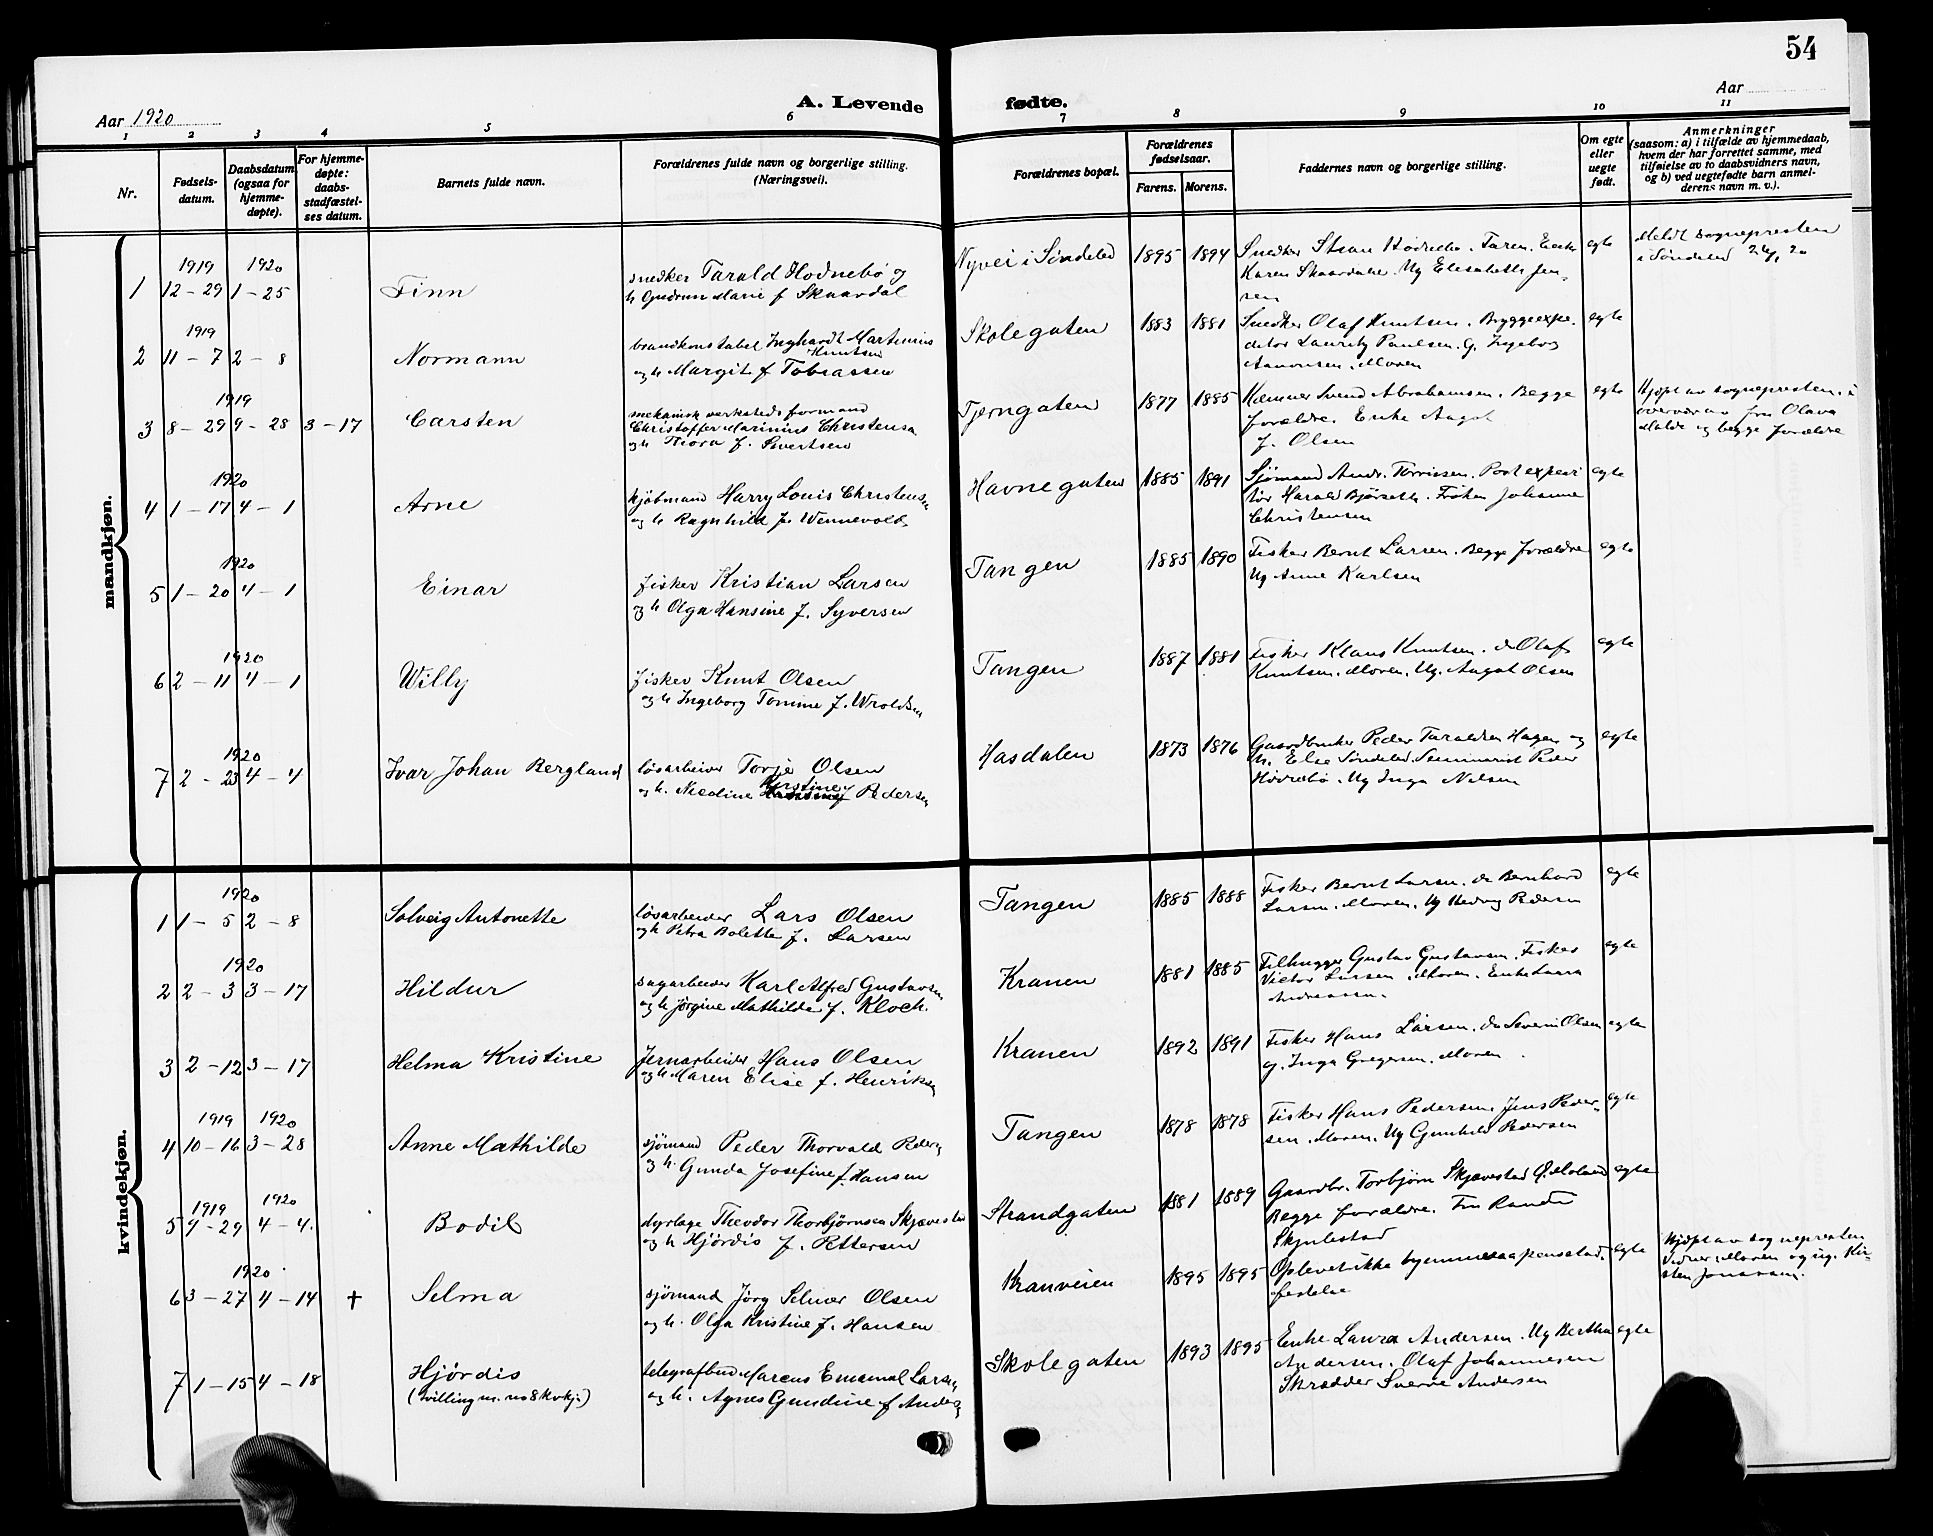 54
A. Levende fødte.
Aar 1920
Aar
1 2 3 4 5 6 7 8 9 10 11
Nr.
Fødsels-
datum.
Daabsdatum
(ogsaa for
hjemme-
døpte).
For hjemme-
døpte:
daabs-
stadfæstel-
ses datum.
Barnets fulde navn.
Forældrenes fulde navn og borgerlige stilling.
(Næringsvei).
Forældrenes bopæl.
Forældrenes
fødselsaar.
Farens. Morens.
Faddernes navn og borgerlige stilling.
Om egte
eller
uegte
født.
Anmerkninger
(saasom: a) i tilfælde av hjemmedaab,
hvem der har forrettet samme, med
tilføielse av to daabsvidners navn,
og b) ved uegtefødte barn anmel-
derens navn m. v.).
mandkjøn.
1919 1920
1 12-29 1-25 Finn
snedker Tarald Hodnebø og
h Gudrun Marie f Skaardal
Nyvei i Søndeled 1895 1894
Karen Skaardal. Ug Elisabeth Jen-
sen
egte
Meldt sognepresten
i Søndeled
1919
2 11-7 2-8 Normann
brandkonstabel Inghardt Martinius
Knutsen
og h Margit f Tobiassen
Skolegaten 1883 1881
Snedker Olaf Knutsen. Bryggeexpe-
ditør Lauritz Paulsen. G. Ingeborg
Aanonsen. Moren
egte
1919
3 8-29 9-28 3-17 Carsten
mekanisk verksteds formand
Christoffer Marinius Christensen
og h Thora f. Sivertsen
Tjerngaten 1877 1885
Kæmner Svend Abrahamsen. Begge
forældre. Enke Aagot
f. Olsen
egte
Hjdpt av sognepresten i
overvær av fru Olava
Molde og begge forældre
1920
4 1-17 4-1 Arne
kjøbmand Harry Louis Christensen
og h Ragnhild f. Wennevold
Havnegaten 1885 1891
Sjømand Andr. Tørrissen. Postexpedi
tør Harald Bjørseth. Frøken Johanne
Christensen
egte
1920
5 1-20 4-1 Einar
fisker Kristian Larsen
og h Olga Hansine f. Syversen
Tangen 1885 1890
Fisker Bernt Larsen. Begge forældre
Ug Anne Karlsen
egte
1920
6 2-11 4-1 Willy
fisker Knut Olsen
og h Ingeborg Tomine f. Wroldsen
Tangen 1887 1881
Fisker Klaus Knutsen. do Olaf
Knutsen. Moren. Ug. Aagot Olsen
egte
1920
7 2-23 4-4 Ivar Johan Bergland
løsarbeider Torje Olsen
Kirstine
og h. Nicoline f Pedersen
Hasdalen 1873 1876
Gaardbruker Peder Taraldsen Hagen og
h. Else Søndeled. Seminarist Peder
Hødnebø. Ug Inga Nilsen
egte
kvindekjøn.
1920
1 1-5 2-8 Solveig Antonette
løsarbeider Lars Olsen
og h Petra Bolette f. Larsen
Tangen 1885 1888
Fisker Bernt Larsen. do Bernhard
Larsen. Moren. Ug Hedvig Pedersen
egte
1920
2 2-3 3-17 Hildur
sagarbeider Karl Alfred Gustavsen
og h Jørgine Mathilde f. Kloch.
Kranen 1881 1885
Filhugger Gustav Gustavsen. Fisker
Victor Larsen. Moren. Enke Laura
Andreassen.
egte
3 2-12 3-17 Helma Kristine
Jernarbeider Hans Olsen
og h Maren Elise f. Henriksen
Kranen 1892 1891
Fisker Hans Larsen. do Severin Olsen
G. Inga Gregersen. Moren.
egte
1919 1920
4 10-16 3-28 Anne Mathilde
sjømand Peder Thorvald Pedersen
og h. Gunda Josefine f. Hansen
Tangen 1878 1878
Fisker Hans Pedersen. Jens Peder-
sen. Moren. Ug Gunhild Pedersen
egte
1919 1920
5 9-29 4-4. Bodil
dyrlæge Theodor Thorbjørnsen Skjævestad
og h Hjørdis f. Pettersen
Strandgaten 1881 1889
Gaardbr. Torbjørn Skjævestad
Begge forældre.
egte
1920
6 3-27 4-14 † Selma
sjømand Jørg Selmer Olsen
og h. Olga Kristine f. Hansen
Kranveien 1895 1895
Oplevet ikke
egte
Hjdpt av sognepresten
Vidner: Moren og ug. Kir-
sten Jonassen.
7 1-15 4-18 Hjørdis
(tvilling m. no 8 kvkj.)
telegrafbud Marcus Emanuel Larsen
og h. Agnes Gundine f Andersen
Skolegaten 1893 1895
Enke Laura Andersen. Ug Bertha
Andersen. Olaf Johannesen
Skrædder Sverre Andersen
egte